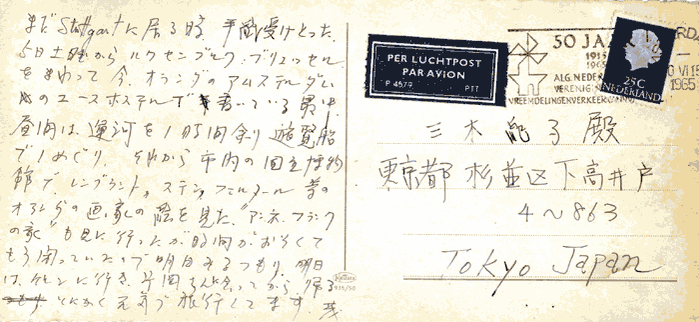 まだStuttgartに居る時、手紙受けとった。
5日土曜から ルクセンブルク、ブリュッセル
をまわって 今 オランダの アムステルダム
のユースホステルで 書いている
昼間は 運河を 1時間余り 遊覧船
で1めぐり、それから 市内の国立博物
館で レンブラント、ステン、フェルメール 昔の
オランダの画家の 絵を見た。"アンネ・フランク
の家"も見に行ったが時間がおそくて
もう閉っていたので明日みるつもり。明日
は に行き、片岡さんに会ってから 帰る
とにかく元気で旅行してます。
PER LUCHTPOST
PAR AVION
P 4579 PTT
50 JA
1915
1965
ALG. NEDER
VERENIG
VREEMDELINGENVERKEER
VI 15
1965
25C
NEDERLAND
三木 子 殿
東京都 杉並区 下高井戸
4~863
Tokyo Japan